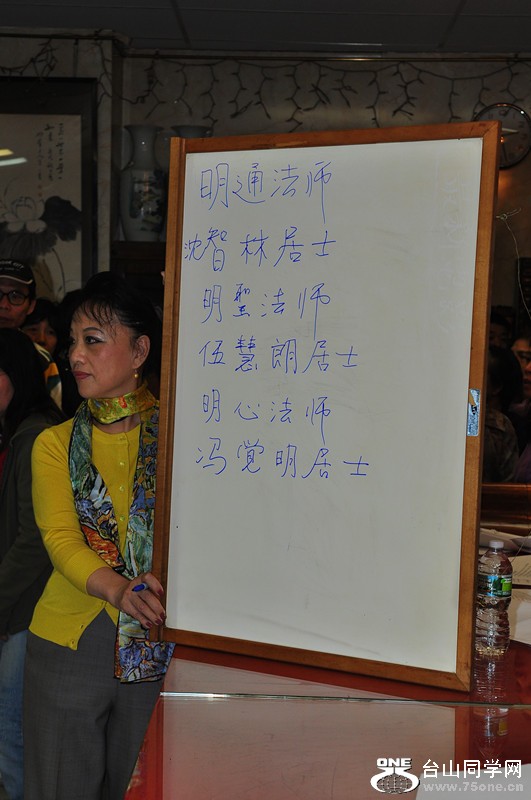 明通法师
沈智林居士
明圣法师
伍慧朗居士
明心法师
冯觉明居士
ONE
台山同学网
www.75one.cn